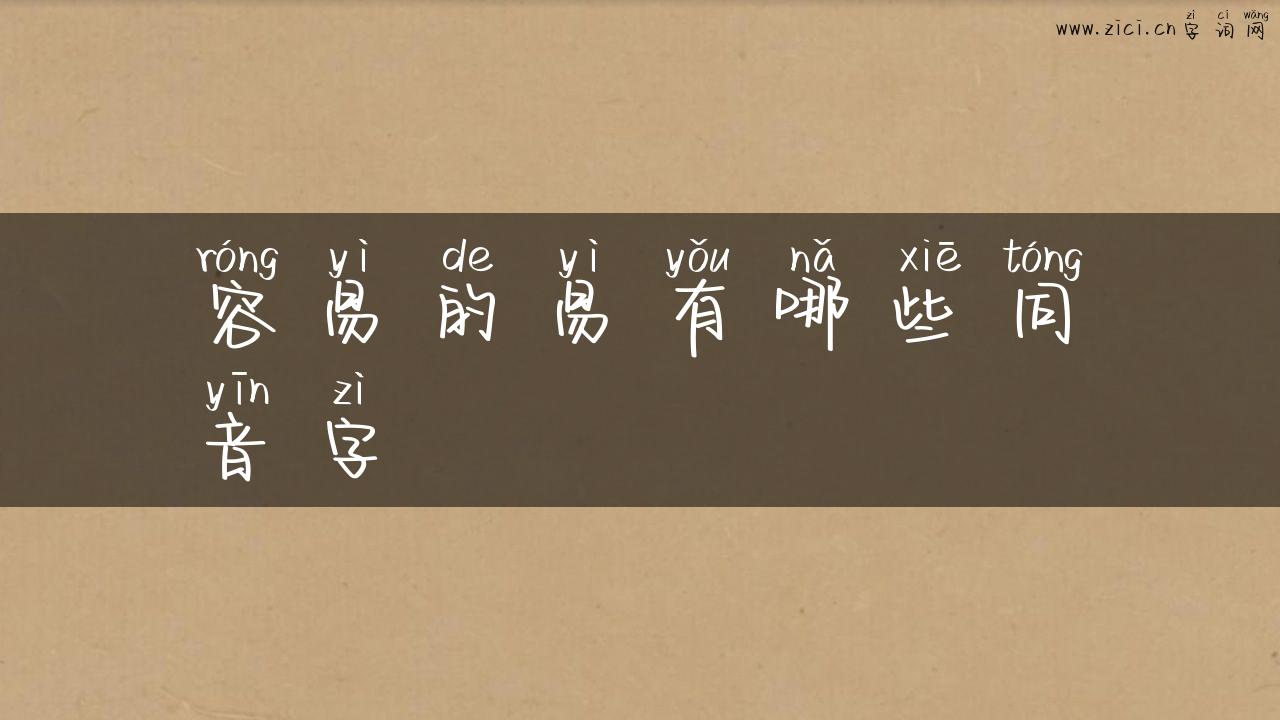 zì cí wǎng
www.zici.cn 字词网
róng yì de yì yǒu nǎ xiē tóng
容易的易有哪些同
yīn zì
音字